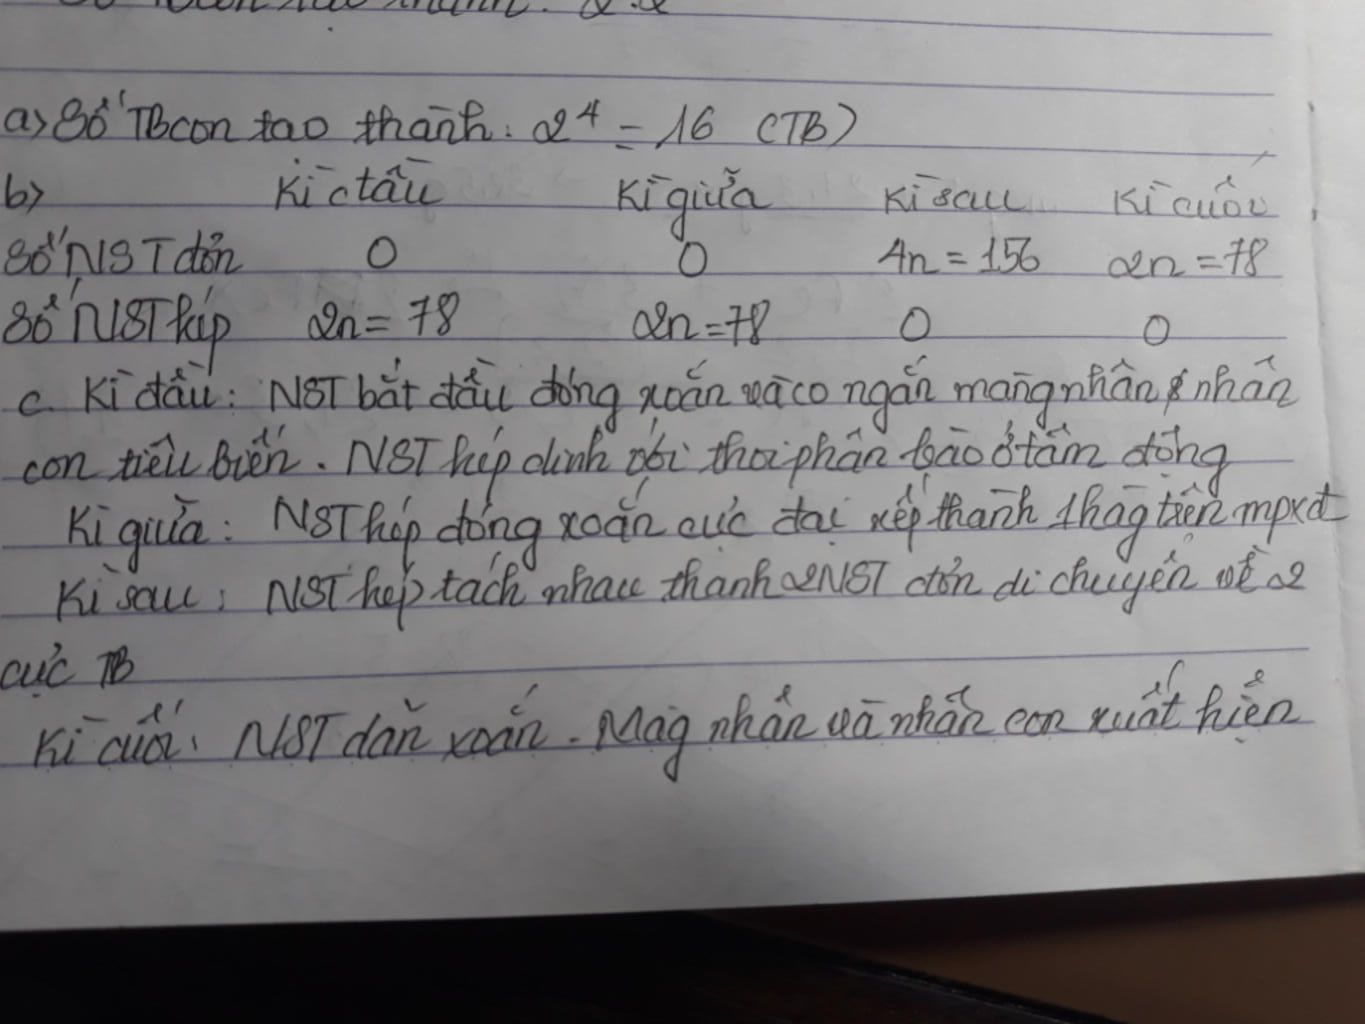 a) Số TB con tạo thành: 2⁴ = 16 (TB)
b) Kì đầu Kì giữa Kì sau Kì cuối
Số NST đơn 0 0 4n = 156 2n = 78
Số NST kép 2n = 78 2n = 78 0 0
c. Kì đầu: NST bắt đầu đóng xoắn và co ngắn màng nhân & nhân
con tiêu biến. NST kép dính với thoi phân bào ở tâm động
Kì giữa: NST kép đóng xoắn cực đại xếp thành 1 hàg trên mpxđ
Kì sau: NST kép tách nhau thành 2 NST đơn di chuyển về 2
cực TB
Kì cuối: NST dãn xoắn. Màg nhân và nhân con xuất hiện